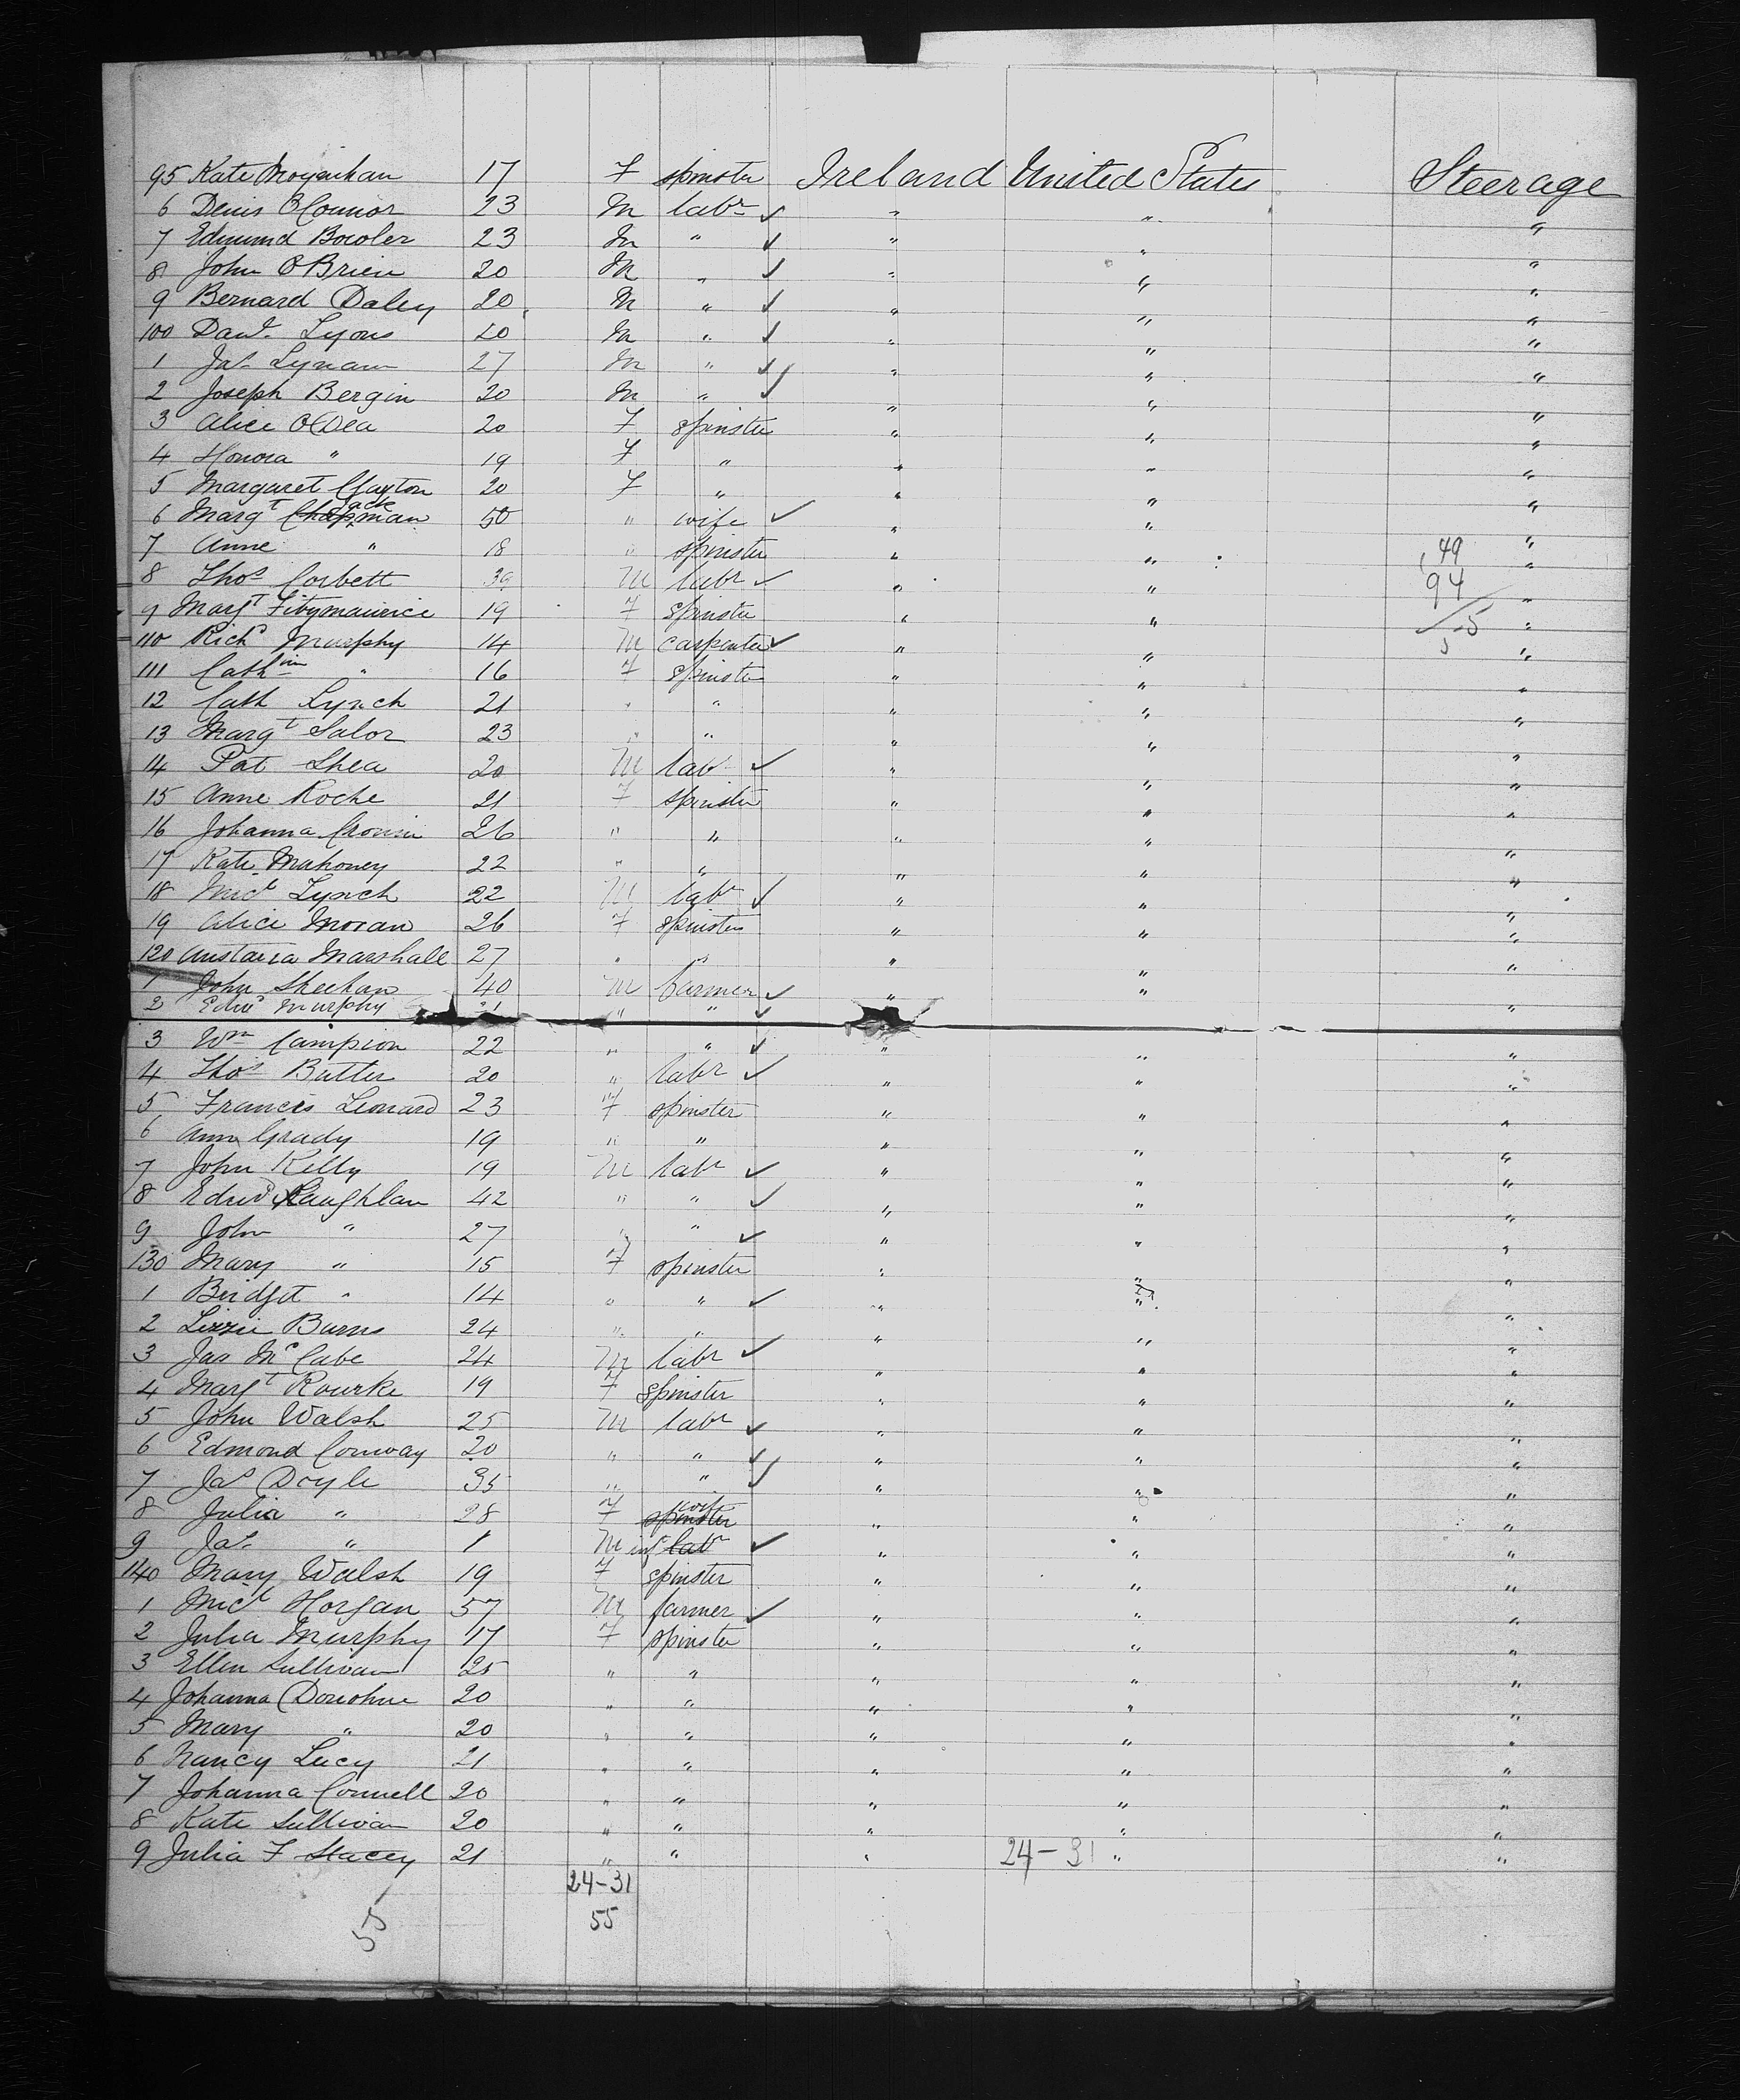 95 Kate Moynihan 17 F spinster Ireland United States Steerage
6 Denis O'Connor 23 M labr ✓ " " "
7 Edmund Bowler 23 M " ✓ " " "
8 John O'Brien 20 M " ✓ " " "
9 Bernard Daley 20 M " ✓ " " "
100 Danl Lyons 20 M " ✓ " " "
1 Jas Lynam 27 M " ✓ " " "
2 Joseph Bergin 20 M " ✓ " " "
3 Alice O'Dea 20 F spinster " " "
4 Honora " 19 F " " " "
5 Margaret Clayton 20 F " " " "
6 Margt Chapman 50 " wife ✓ " " "
7 Anne " 18 " spinster " " 49 "
8 Thos Corbett 39 M labr ✓ " " 94 "
9 Margt Fitzmaurice 19 F spinster " " "
110 Richd Murphy 14 M carpenter ✓ " " "
111 Cathin " 16 F spinster " " "
12 Cath Lynch 21 " " " " "
13 Margt Salor 23 " " " " "
14 Pat Shea 20 M labr ✓ " " "
15 Anne Roche 21 F spinster " " "
16 Johanna Cronin 26 " " " " "
17 Kate Mahoney 22 " " " " "
18 Micl Lynch 22 M labr ✓ " " "
19 Alice Moran 26 F spinster " " "
120 Anstatia Marshall 27 " " " " "
1 John Sheehan 40 M farmer ✓ " " "
2 Edwd Murphy 21 " " ✓ "
3 Wm Campion 22 " " ✓ " " "
4 Thos Butler 20 " labr ✓ " " "
5 Francis Leonard 23 F spinster " " "
6 Ann Grady 19 " " " " "
7 John Kelly 19 M labr ✓ " " "
8 Edwd Laughlan 42 " " ✓ " " "
9 John " 27 " " ✓ " " "
130 Mary " 15 F spinster " " "
1 Bridget " 14 " " ✓ " " "
2 Lizzie Burns 24 " " " " "
3 Jas McCabe 24 M labr ✓ " " "
4 Margt Rourke 19 F spinster " " "
5 John Walsh 25 M labr ✓ " " "
6 Edmond Conway 20 " " ✓ " " "
7 Jas Doyle 35 " " ✓ " " "
8 Julia " 28 F spinster wife " " "
9 Jas " 1 M inf labr ✓ " " "
140 Mary Walsh 19 F spinster " " "
1 Micl Horgan 57 M farmer ✓ " " "
2 Julia Murphy 17 F spinster " " "
3 Ellen Sullivan 25 " " " " "
4 Johanna Donohue 20 " " " " "
5 Mary " 20 " " " " "
6 Nancy Lucy 21 " " " " "
7 Johanna Connell 20 " " " " "
8 Kate Sullivan 20 " " " " "
9 Julia F Stacey 21 " " " 24-31 " "
24-31
55